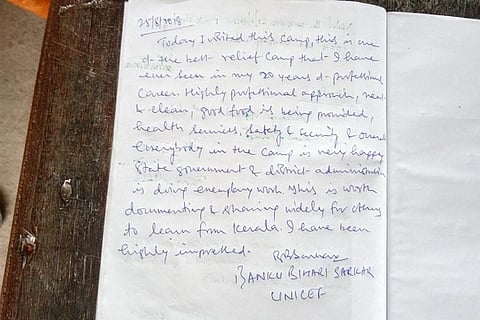 25/8/2018
Today I visited this camp, this is one
of the best relief camp that I have
ever seen in my 20 years of professional
career. Highly professional approach, neat
& clean, good food is being provided,
health services, safety & security & overall
everybody in the camp is very happy
State government & district administration
is doing exemplary work. This is worth
documenting & sharing widely for others
to learn from Kerala. I have been
highly impressed.
BBSarkar
BANKU BIHARI SARKAR
UNICEF